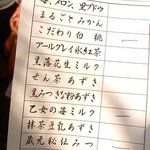 苺、メロン、黒ブドウ
まるごとみかん
こだわり白桃
アールグレイ氷紅茶
黒落花生ミルク
せん茶あずき
黒みつきな粉あずき
乙女の苺ミルク
抹茶豆乳あずき
蔵元秘伝みつ
一